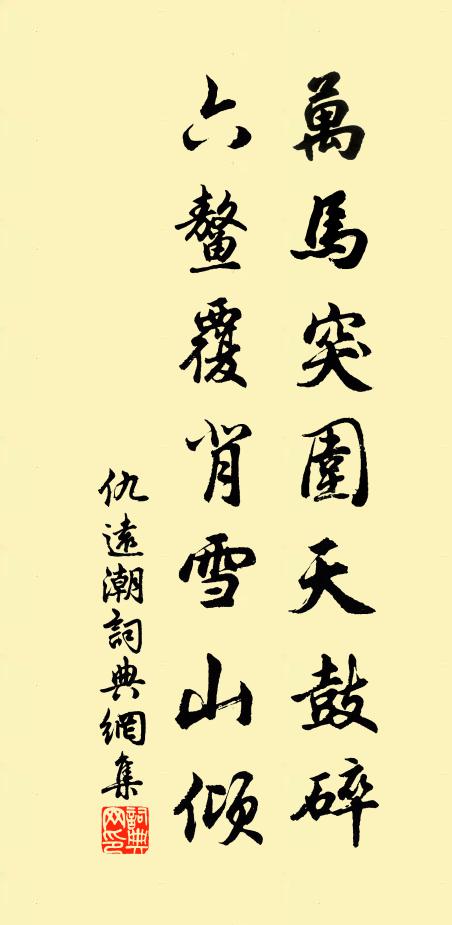 萬馬突圍天鼓碎
六鼇覆背雪山傾
仇遠潮詞典網集
詞典網印